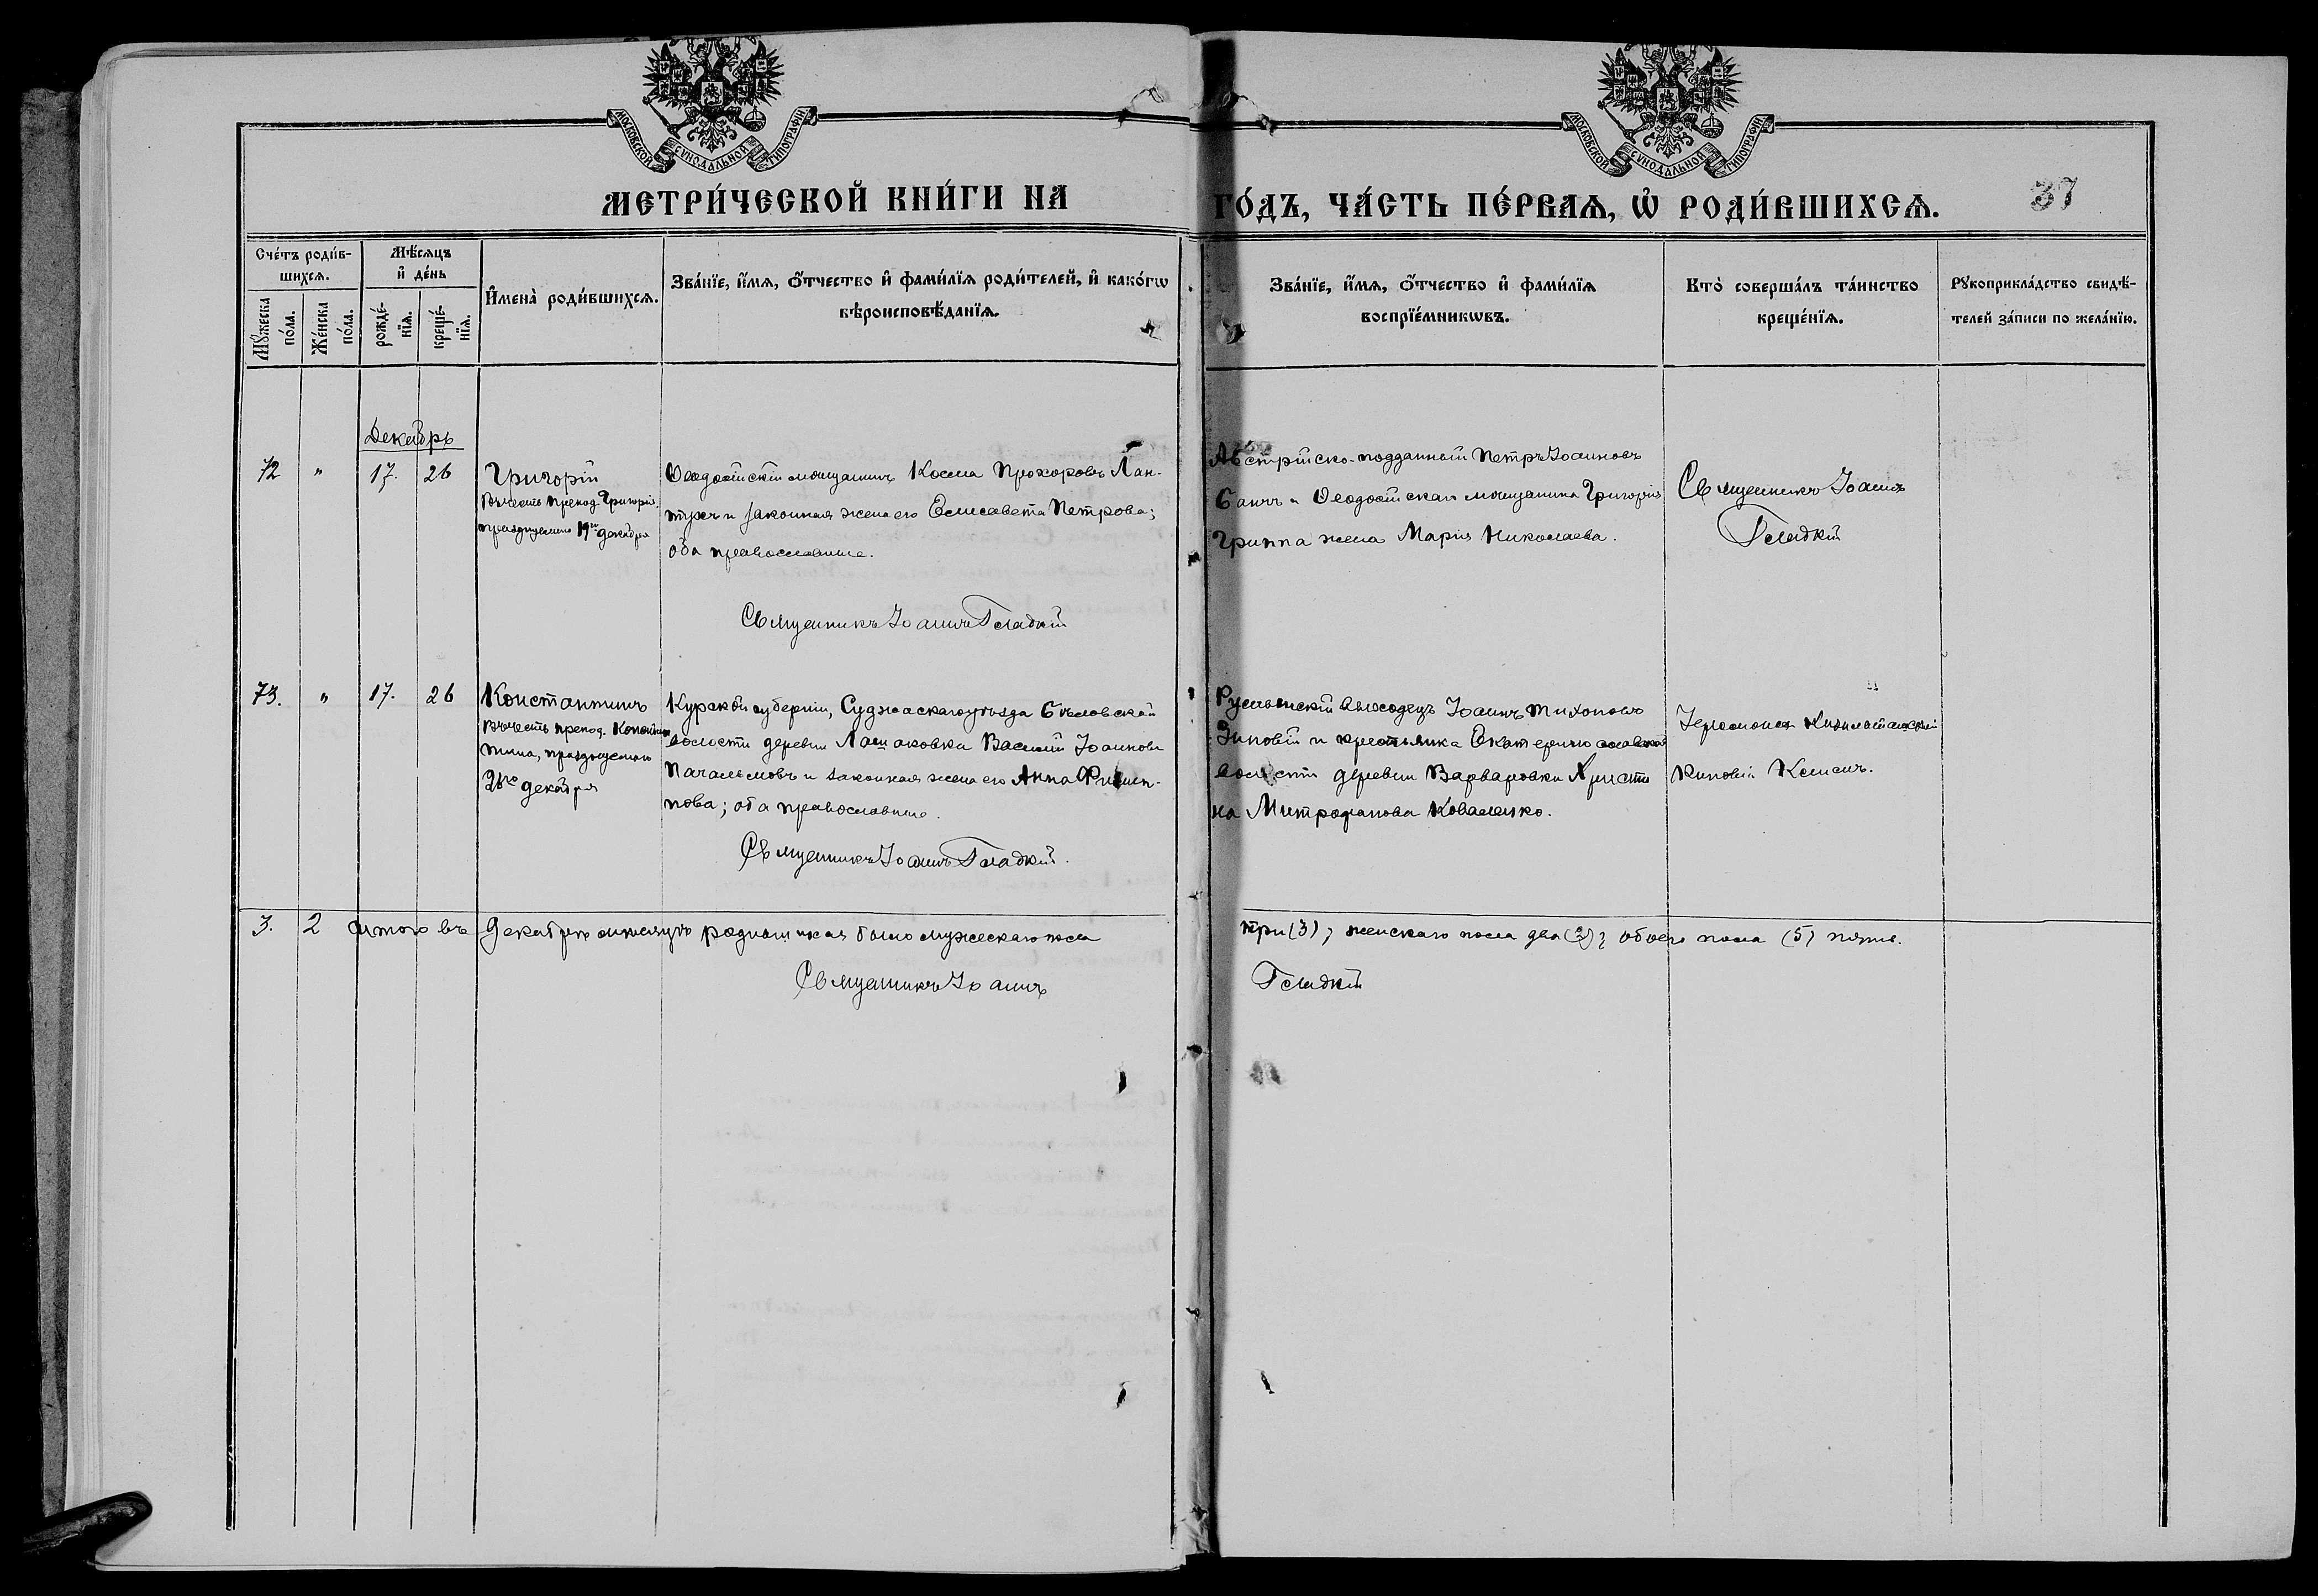 МОСКОВСКОЙ СѴНОДАЛЬНОЙ ТИПОГРАФІИ
МОСКОВСКОЙ СѴНОДАЛЬНОЙ ТИПОГРАФІИ
МЕТРИ́ЧЕСКОЙ КНИ́ГИ НА
ГО́ДЪ, ЧА́СТЬ ПЕ́РВАѦ, Ѡ҆ РОДИ́ВШИХСѦ.
37
Сче́тъ роди́в-
шихсѧ.
Мꙋ́жеска
по́ла.
Же́нска
по́ла.
Мѣ́сѧцъ
и҆ де́нь
рожде́-
нїѧ.
креще́-
нїѧ.
И҆мена̀ роди́вшихсѧ.
Зва́нїе, и҆́мѧ, ѻ҆́тчество и҆ фами́лїѧ роди́телей, и҆ како́гѡ
вѣроисповѣ́данїѧ.
Зва́нїе, и҆́мѧ, ѻ҆́тчество и҆ фами́лїѧ
воспрїе́мникѡвъ.
Кто̀ соверша́лъ та́инство
креще́нїѧ.
Рꙋкоприкла́дство свидѣ́-
телей за́писи по жела́нїю.
Декабрь
72 " 17. 26
Григорій
Въ честь препод. Григорія,
празднуемаго 19го декабря
Ѳеодосійскій мѣщанинъ Косма Прохоровъ Лан-
и законная жена его Елисавета Петрова;
оба православные.
Священникъ Іоаннъ Гладкій
Австрійско-подданный Петръ Іоанновъ
и Ѳеодосійскаго мѣщанина Григорія
Гриппа жена Марія Николаева.
Священникъ Іоаннъ
Гладкій
73. " 17. 26
Константинъ
Въ честь препод. Констан-
тина, празднуемаго
декабря
Курской губерніи, Суджаскаго уѣзда Бѣловской
волости деревни Василій Іоанновъ
и законная жена его Анна Филип-
пова; оба православные.
Священникъ Іоаннъ Гладкій.
выходецъ Іоаннъ Тихоновъ
Зиновій и крестьянка
волости деревни Варваровки Христи
на Митрофанова Коваленко.
Іеромонах
3. 2 Итого въ декабрѣ мѣсяцѣ родившихся было мужескаго пола
три (3); женскаго пола два (2); обоего пола (5) пять.
Священникъ Іоаннъ
Гладкій